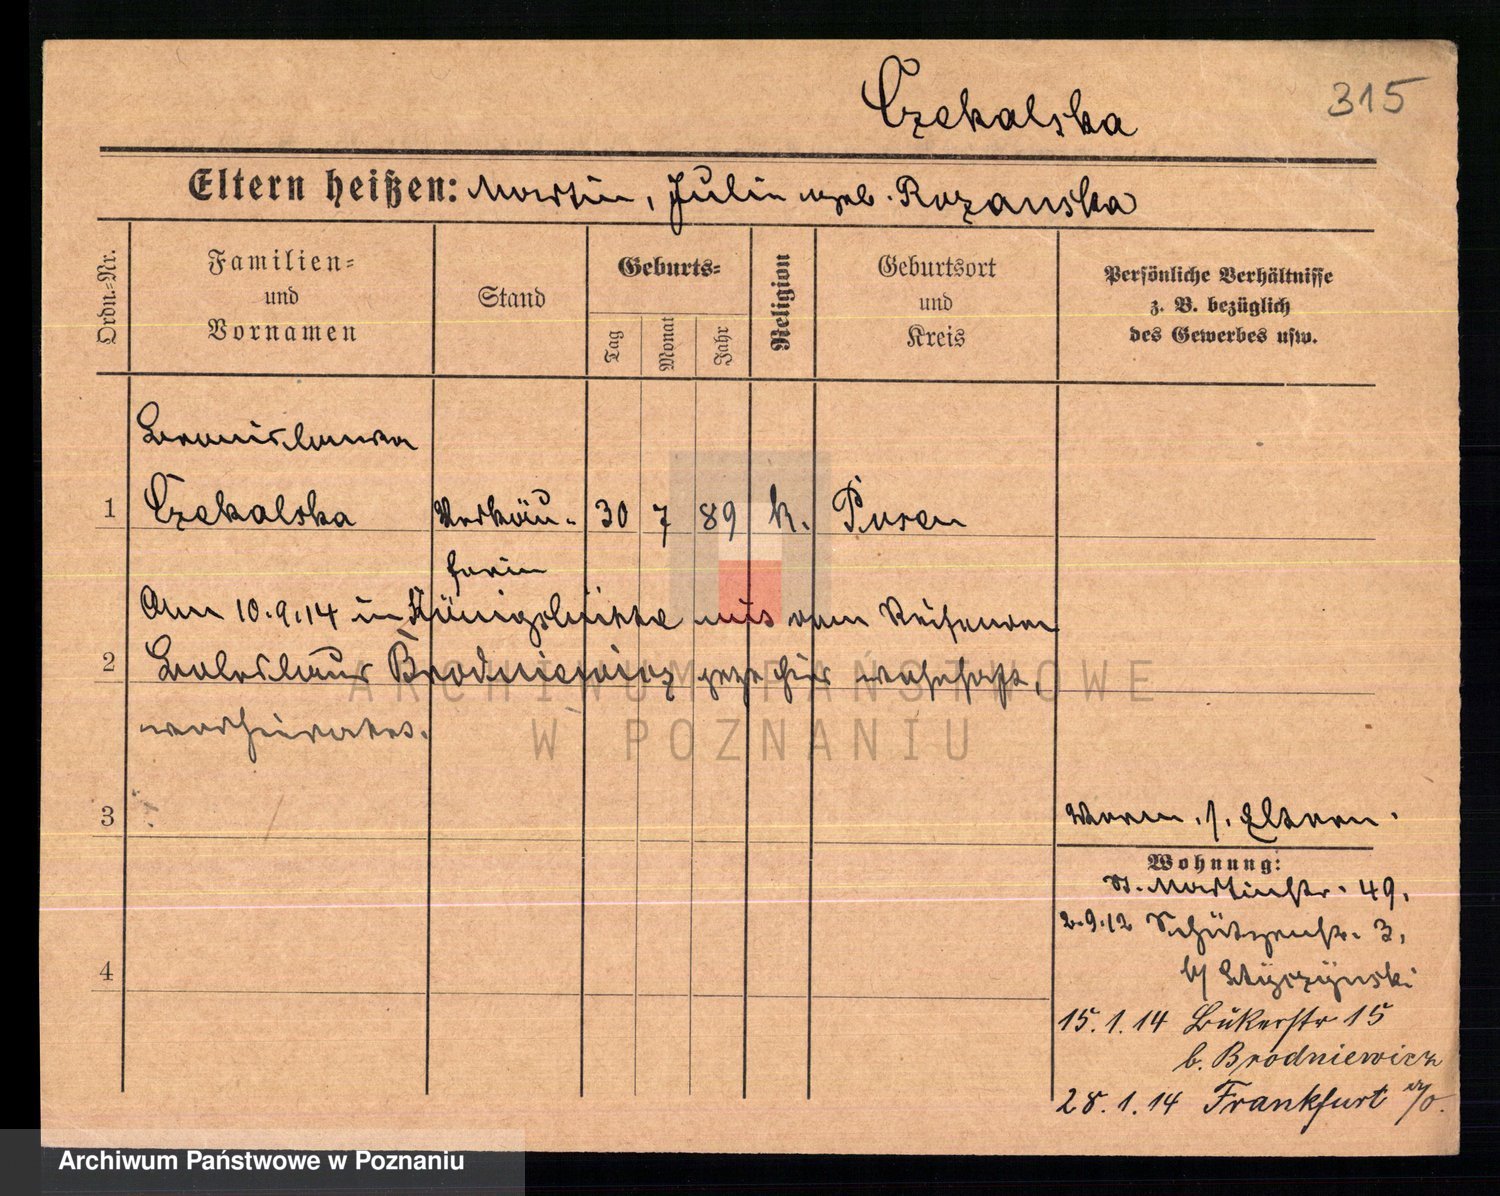 Czekalska
315
Eltern heißen: Martin, Julie geb. Rozanska
Ordn.-Nr.
Familien-
und
Vornamen
Stand
Geburts-
Tag
Monat
Jahr
Religion
Geburtsort
und
Kreis
Persönliche Verhältnisse
z. B. bezüglich
des Gewerbes usw.
Bronislawa
1 Czekalska Verkäu- 30 7 89 k. Posen
ferin
Am 10.9.14 in Königshütte mit dem Reisenden
2 Boleslaus Brodniewicz hier wohnhaft,
verheiratet.
3
Verm. s. Eltern.
Wohnung:
St. Martinstr. 49,
2.9.12 Schützenstr. 3,
b/
4
15.1.14 Bukerstr 15
b. Brodniewicz
28.1.14 Frankfurt a/O.
ARCHIWUM PAŃSTWOWE
W POZNANIU
Archiwum Państwowe w Poznaniu